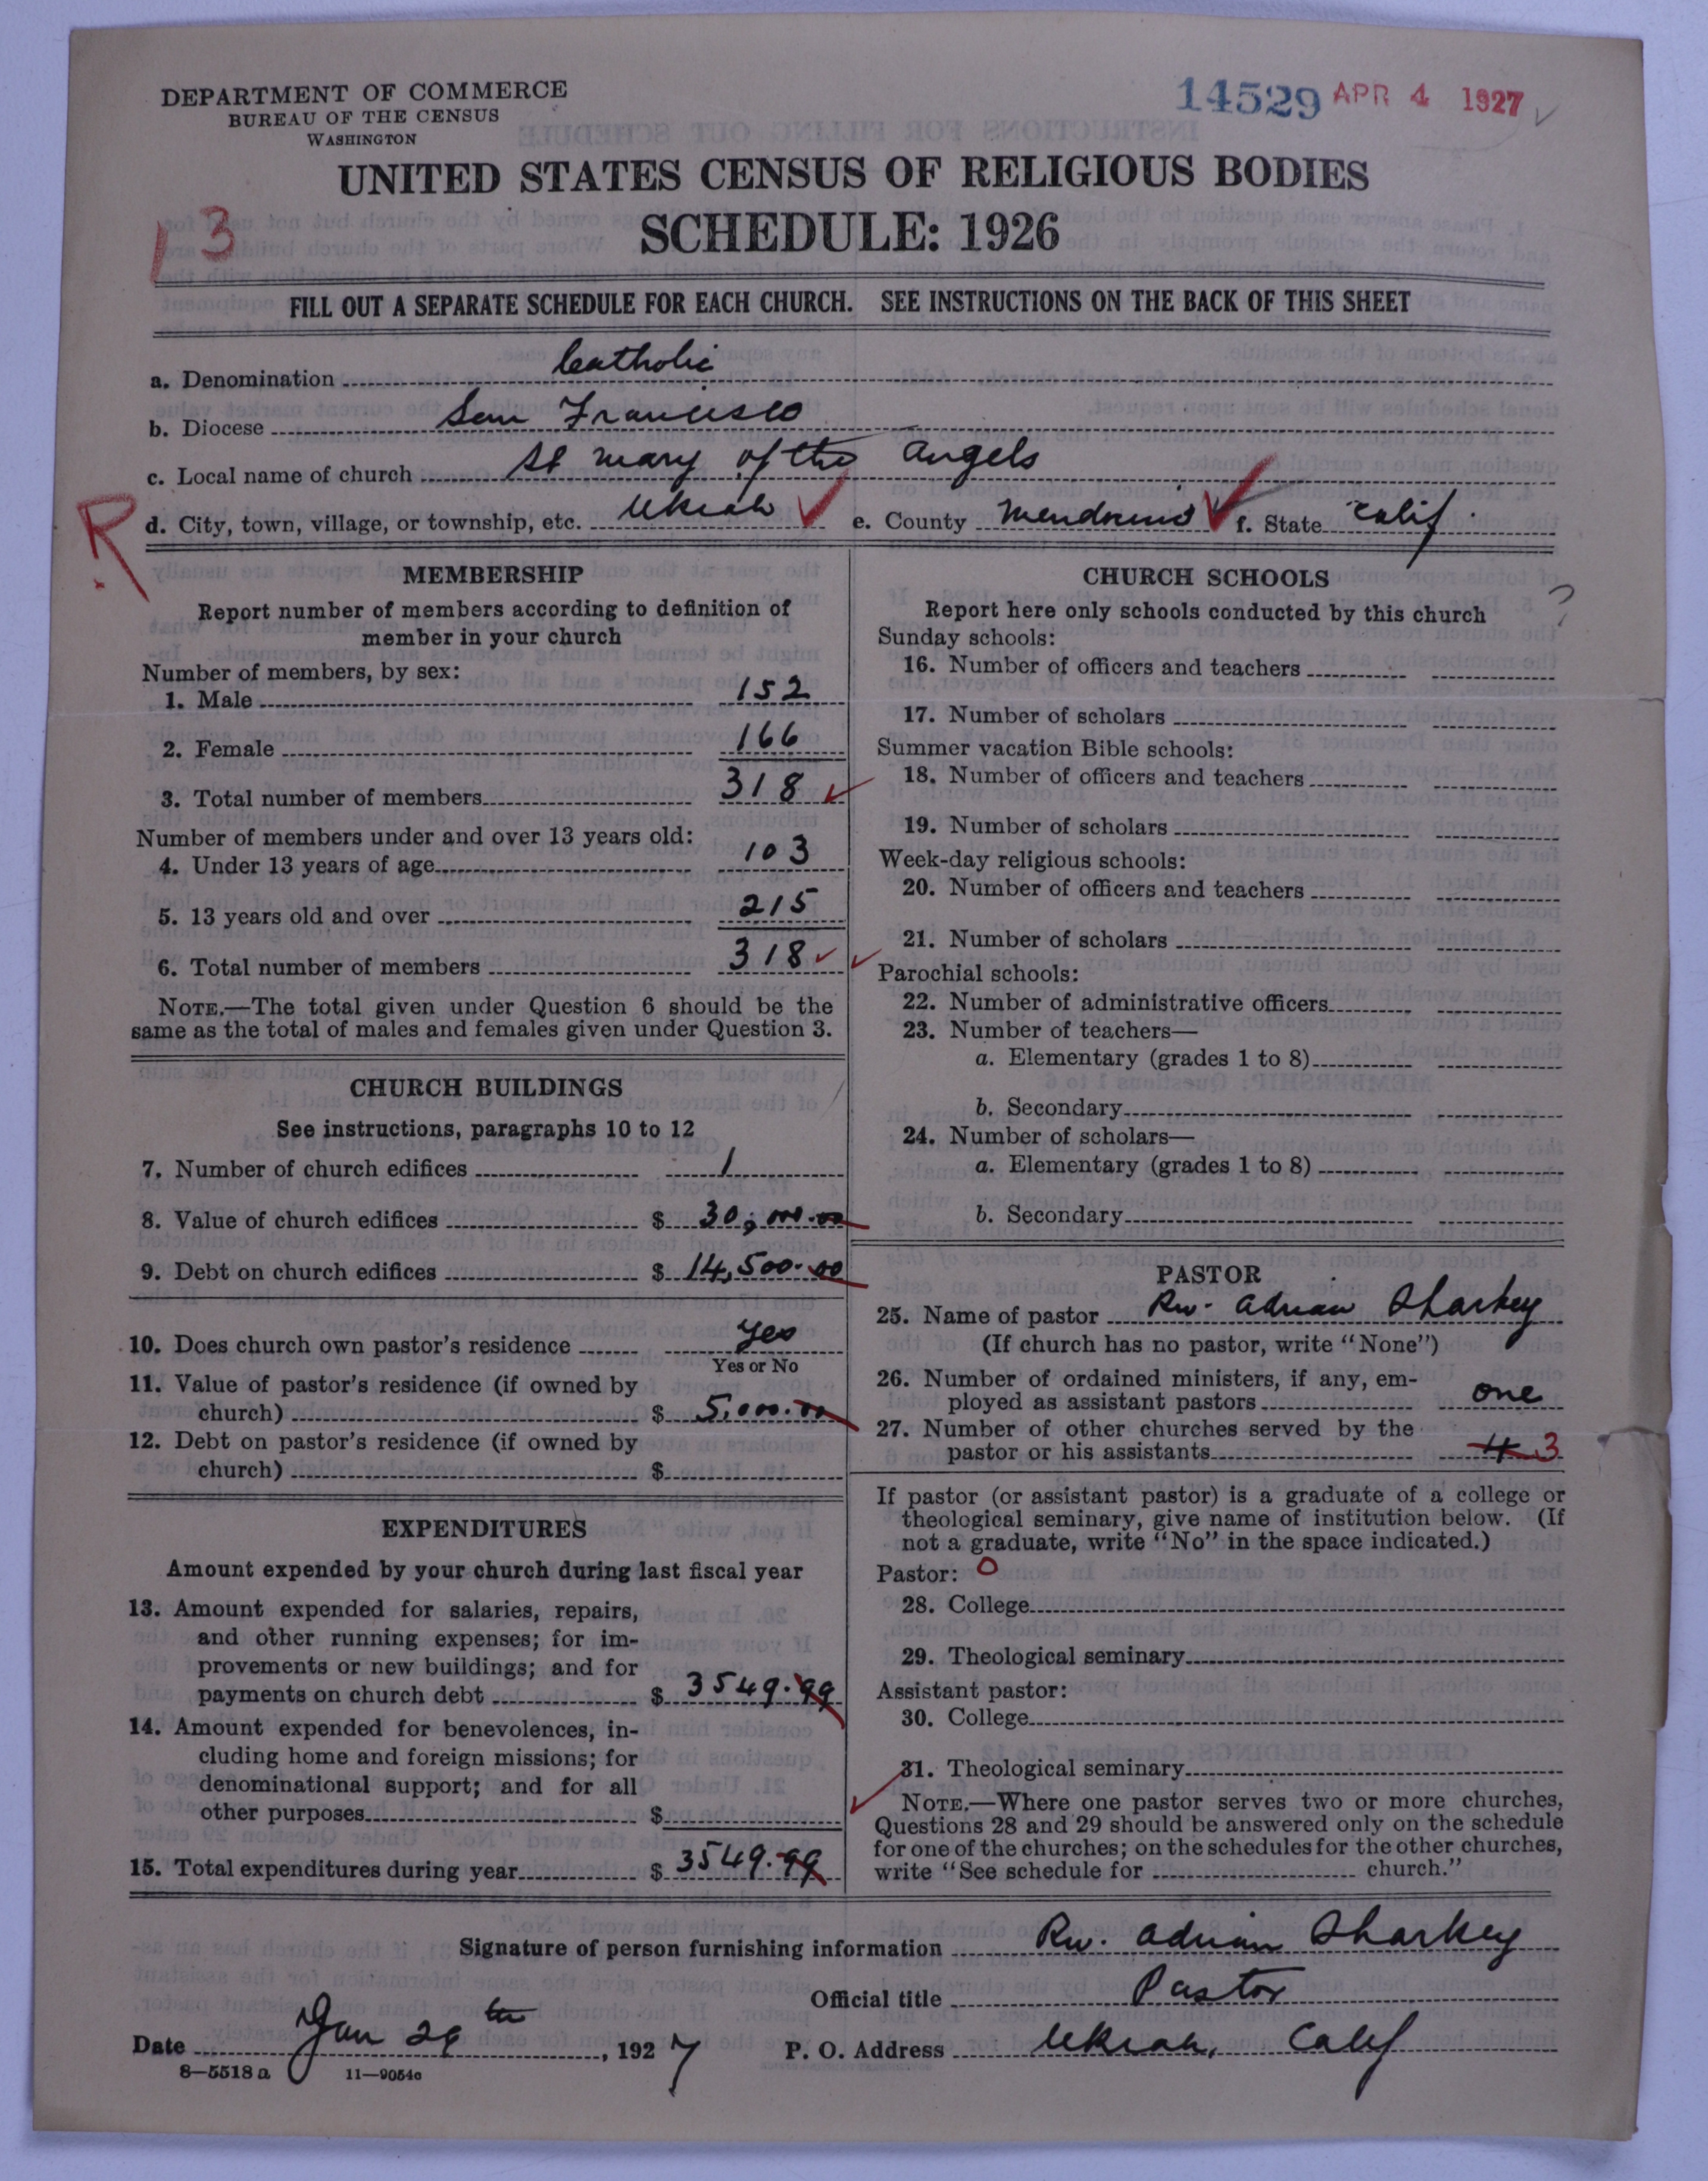 DEPARTMENT OF COMMERCE
BUREAU OF THE CENSUS
WASHINGTON
14529 APR 4 1927
UNITED STATES CENSUS OF RELIGIOUS BODIES
SCHEDULE: 1926
13
FILL OUT A SEPARATE SCHEDULE FOR EACH CHURCH. SEE INSTRUCTIONS ON THE BACK OF THIS SHEET
a. Denomination Catholic
b. Diocese San Francisco
c. Local name of church St Mary of the Angels
R
d. City, town, village, or township, etc. Ukiah e. County Mendocino f. State Calif.
MEMBERSHIP
Report number of members according to definition of
member in your church
Number of members, by sex:
1. Male 152
2. Female 166
3. Total number of members 318
Number of members under and over 13 years old:
4. Under 13 years of age 103
5. 13 years old and over 215
6. Total number of members 318
NOTE.—The total given under Question 6 should be the
same as the total of males and females given under Question 3.
CHURCH BUILDINGS
See instructions, paragraphs 10 to 12
7. Number of church edifices 1
8. Value of church edifices $ 30,000.00
9. Debt on church edifices $ 14,500.00
10. Does church own pastor's residence Yes
Yes or No
11. Value of pastor's residence (if owned by
church) $ 5,000.00
12. Debt on pastor's residence (if owned by
church) $
EXPENDITURES
Amount expended by your church during last fiscal year
13. Amount expended for salaries, repairs,
and other running expenses; for im-
provements or new buildings; and for
payments on church debt $ 3549.99
14. Amount expended for benevolences, in-
cluding home and foreign missions; for
denominational support; and for all
other purposes $
15. Total expenditures during year $ 3549.99
CHURCH SCHOOLS
Report here only schools conducted by this church ?
Sunday schools:
16. Number of officers and teachers
17. Number of scholars
Summer vacation Bible schools:
18. Number of officers and teachers
19. Number of scholars
Week-day religious schools:
20. Number of officers and teachers
21. Number of scholars
Parochial schools:
22. Number of administrative officers
23. Number of teachers—
a. Elementary (grades 1 to 8)
b. Secondary
24. Number of scholars—
a. Elementary (grades 1 to 8)
b. Secondary
PASTOR
25. Name of pastor Rev. Adrian Sharkey
(If church has no pastor, write "None")
26. Number of ordained ministers, if any, em-
ployed as assistant pastors one
27. Number of other churches served by the
pastor or his assistants 4 3
If pastor (or assistant pastor) is a graduate of a college or
theological seminary, give name of institution below. (If
not a graduate, write "No" in the space indicated.)
Pastor: 0
28. College
29. Theological seminary
Assistant pastor:
30. College
31. Theological seminary
NOTE.—Where one pastor serves two or more churches,
Questions 28 and 29 should be answered only on the schedule
for one of the churches; on the schedules for the other churches,
write "See schedule for church."
Signature of person furnishing information Rev. Adrian Sharkey
Official title Pastor
Date Jan 29th, 1927 P. O. Address Ukiah, Calif
8—5518 a 11—9054c